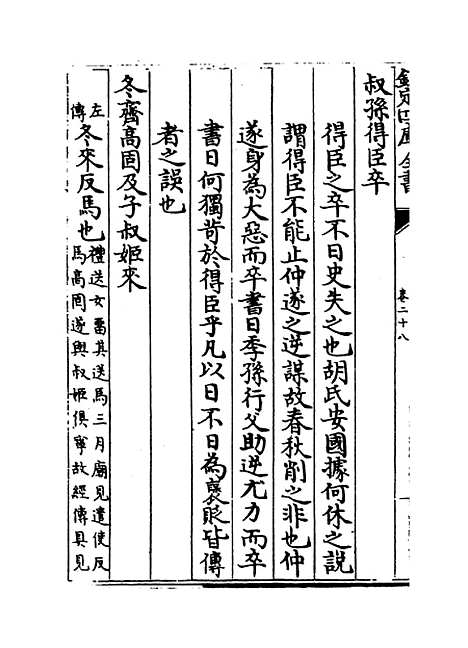 欽定四庫全書
卷二十八
叔孫得臣卒
得臣之卒不日史失之也胡氏安國據何休之說
謂得臣不能止仲遂之逆謀故春秋削之非也仲
遂身為大惡而卒書日季孫行父助逆尤力而卒
書日何獨苛於得臣乎凡以日不日為褒貶皆傳
者之誤也
冬齊高固及子叔姬來
左傳
冬來反馬也
禮送女留其送馬三月廟見遣使反
馬高固遂與叔姬俱寧故經傳具見